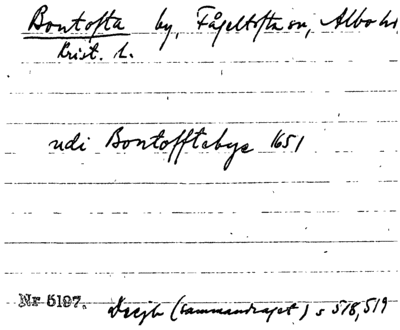 Bontofta by, Fågeltofta sn, Albo h
Krist. L.
udi Bontofftebye 1651
Nr 5197. Decjb (Sammandraget) s 518, 519